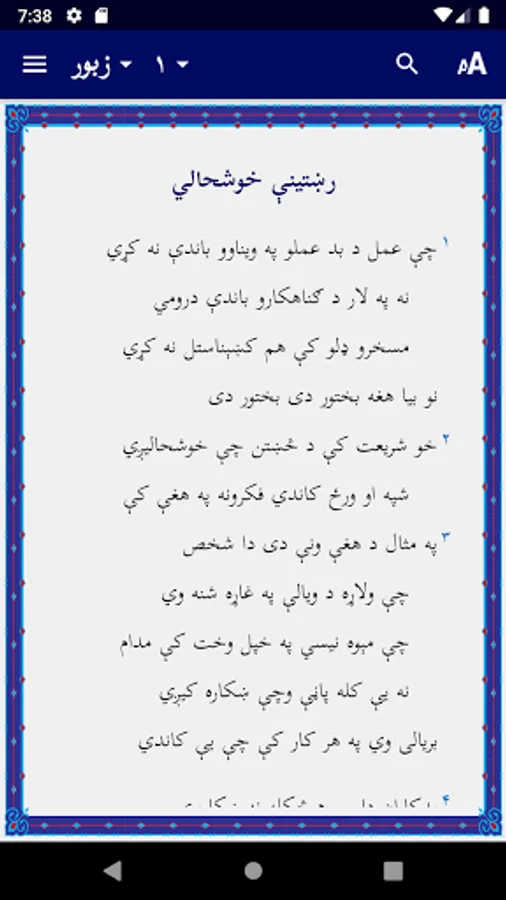 7:38
زبور ۱
رښتينې خوشحالي
۱ چې عمل د بد عملو په ويناوو باندې نه کړي
نه په لار د ګناهکارو باندې درومي
مسخرو ډلو کې هم کښېناستل نه کړي
نو بيا هغه بختور دی بختور دی
۲ خو شريعت کې د څښتن چې خوشحاليږي
شپه او ورځ کاندي فکرونه په هغې کې
۳ په مثال د هغې ونې دی دا شخص
چې ولاړه د ويالې په غاړه شنه وي
چې مېوه نيسي په خپل وخت کې مدام
نه يې کله پاڼې وچې ښکاره کيږي
بريالی وي په هر کار کې چې يې کاندي
۴